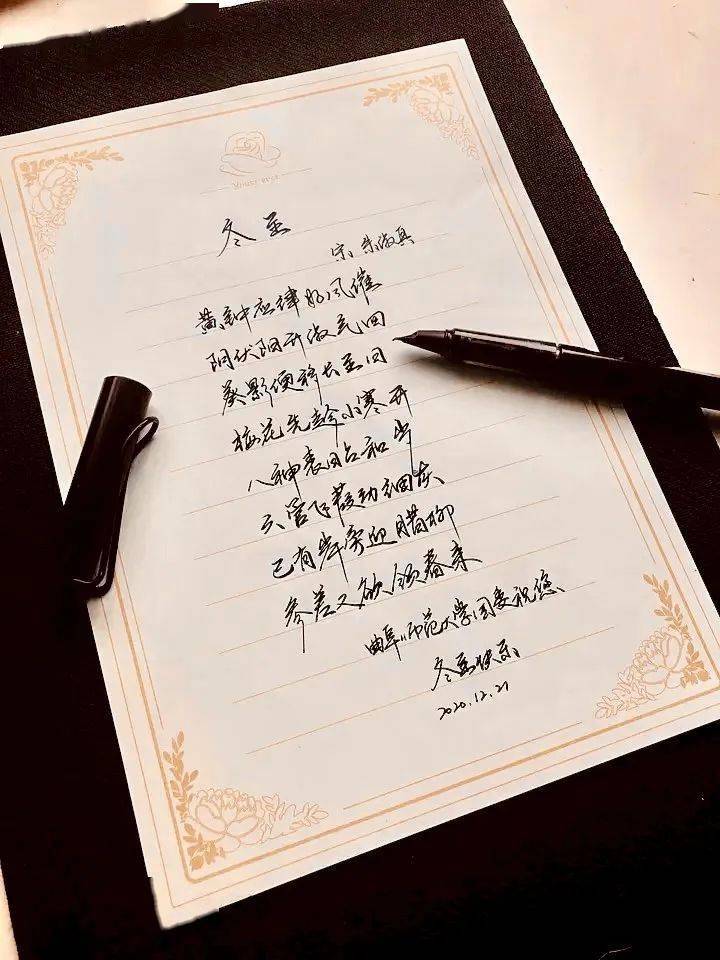 冬至
宋、朱淑真
黄钟应律好风催
阴伏阳升淑气回
葵影便移长至日
梅花先趁小寒开
八神表日占和岁
六管飞葭动细灰
已有岸旁迎腊柳
参差又欲领春来
曲阜师范大学团委祝您
冬至快乐
2020.12.21